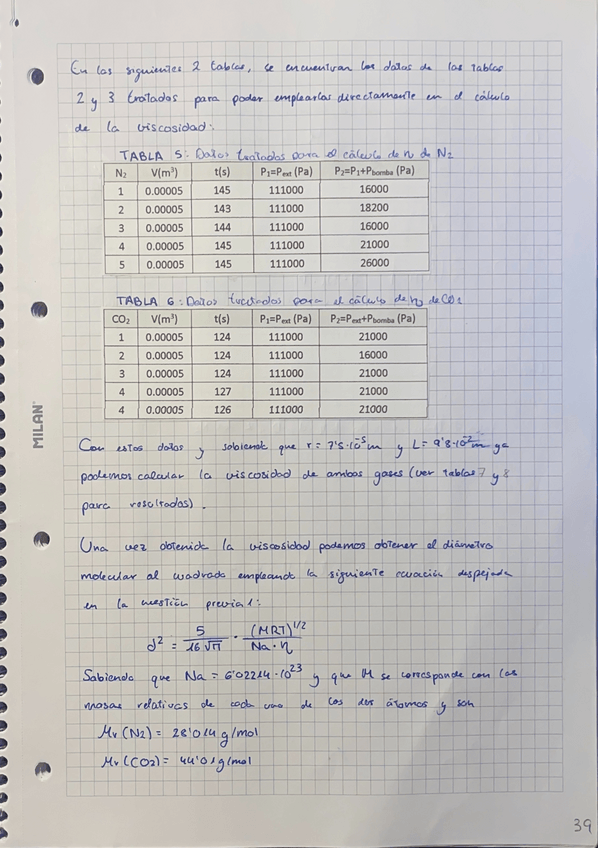 En las siguientes 2 tablas, se encuentran los datos de las tablas
2 y 3 tratados para poder emplearlas directamente en el cálculo
de la viscosidad:
TABLA 5: Datos tratados para el cálculo de η de N2
N₂ V(m³) t(s) P₁=Pext (Pa) P₂=P₁+Pbomba (Pa)
1 0.00005 145 111000 16000
2 0.00005 143 111000 18200
3 0.00005 144 111000 16000
4 0.00005 145 111000 21000
5 0.00005 145 111000 26000
TABLA 6: Datos tratados para el cálculo de η de CO2
CO₂ V(m³) t(s) P₁=Pext (Pa) P₂=Pext+Pbomba (Pa)
1 0.00005 124 111000 21000
2 0.00005 124 111000 16000
3 0.00005 124 111000 21000
4 0.00005 127 111000 21000
4 0.00005 126 111000 21000
MILAN
Con estos datos y sabiendo que r = 7'5·10⁻⁵m y L = 9'8·10⁻²m ya
podemos calcular la viscosidad de ambos gases (ver tablas 7 y 8
para resultados).
Una vez obtenida la viscosidad podemos obtener el diámetro
molecular al cuadrado empleando la siguiente ecuación despejada
en la cuestión previa 1:
d² = 5/(16√π) · (MRT)^1/2/(Na·η)
Sabiendo que Na = 6'02214·10²³ y que M se corresponde con las
masas relativas de cada uno de los dos átomos y son
Mr (N2) = 28'014 g/mol
Mr (CO2) = 44'01 g/mol
39